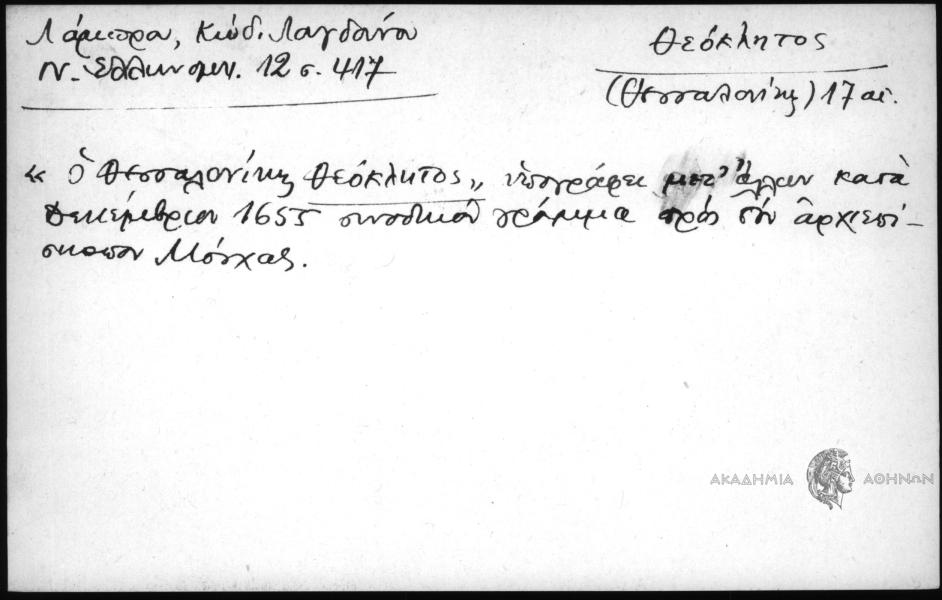 Λάμπρου, Κώδ. Λαγδάνου
Ν. Ἑλληνομν. 12 σ. 417
Θεόκλητος
(Θεσσαλονίκης) 17 αἰ.
« ὁ Θεσσαλονίκης Θεόκλητος „ ὑπογράφει μετ' ἄλλων κατὰ
Δεκέμβριον 1655 συνοδικὸν γράμμα πρὸς τὸν ἀρχιεπί-
σκοπον Μόσχας.
ΑΚΑΔΗΜΙΑ ΑΘΗΝΩΝ